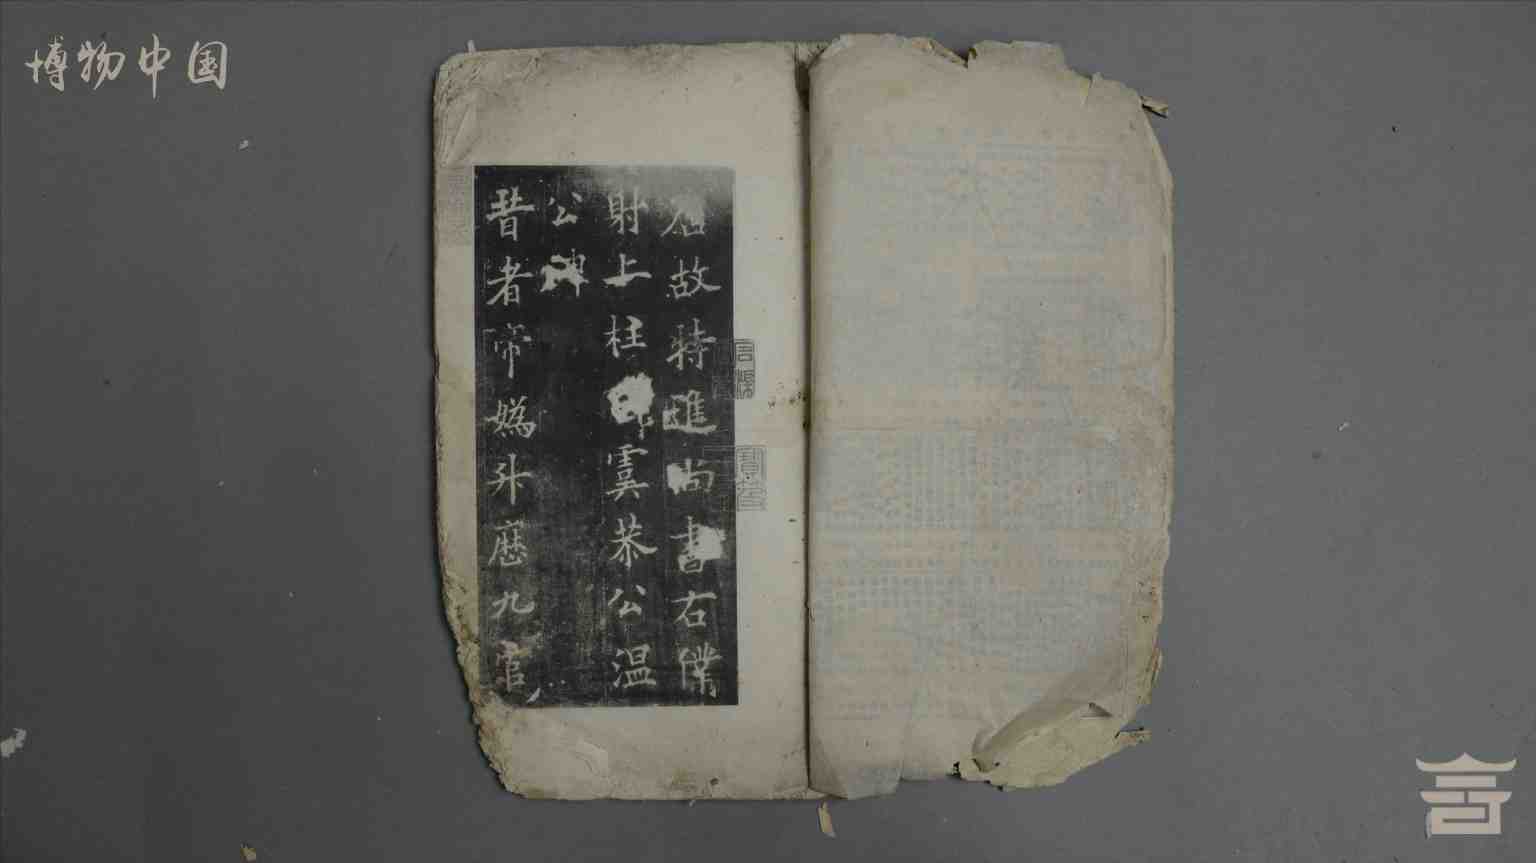 博物中国
唐故特進尚書右僕
射上柱國虞恭公温
公碑
昔者帝媯升歷九官